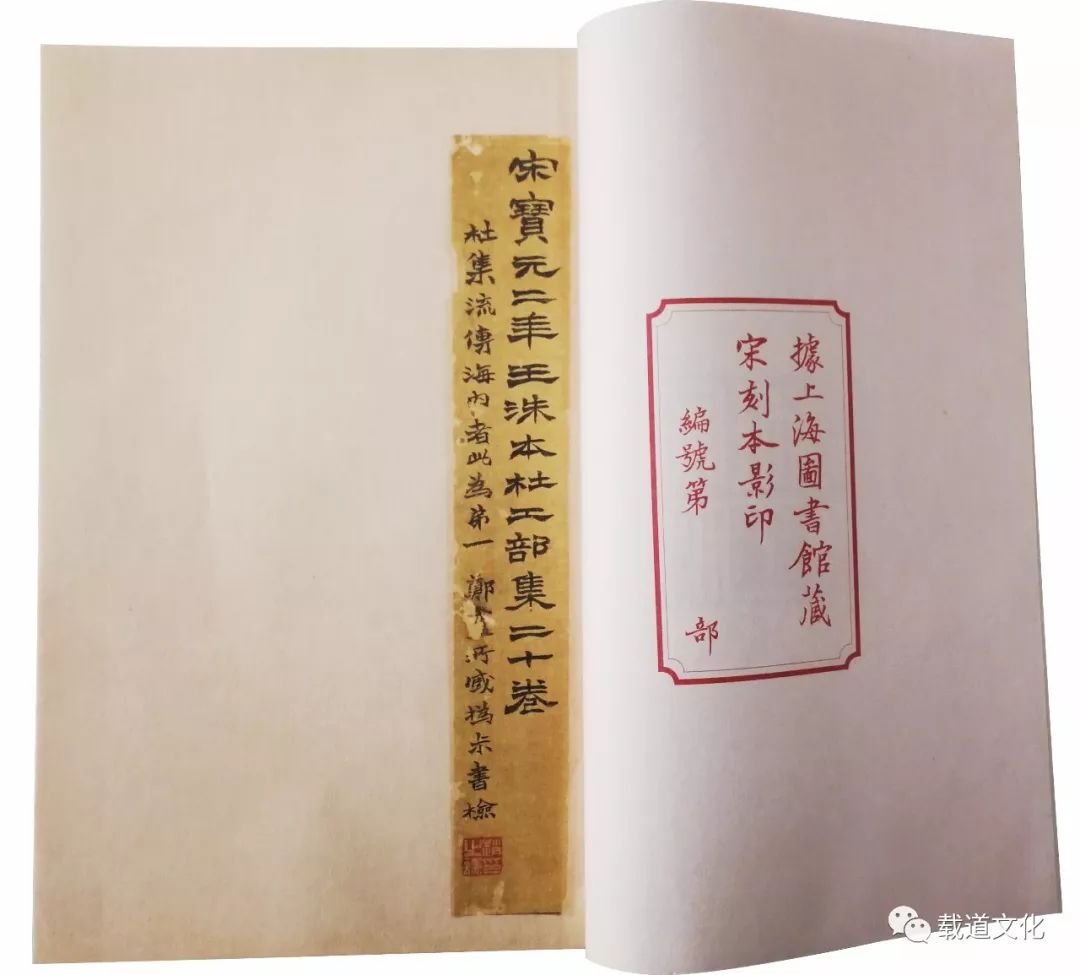 據上海圖書館藏
宋刻本影印
編號第 部
宋寶元二年王洙本杜工部集二十卷
杜集流傳海內者此為第一 鄭 所臧 書檢
载道文化